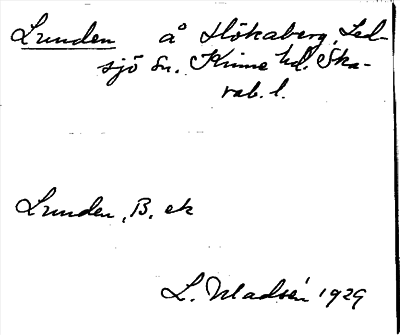 Lunden å Hökaberg, Led-
sjö sn. Kinne hd. Ska-
rab. l.
Lunden, B. ek
L. Madsén 1929